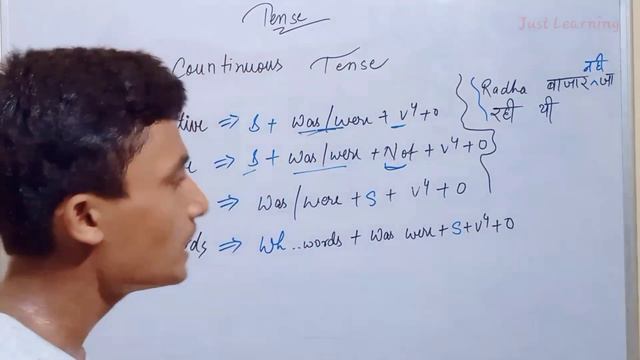 Tense
Just Learning
Countinuous Tense
tive ⇒ S + Was/were + v⁴+0
⇒ S + Was/were + Not + v⁴+0
⇒ Was/were + S + v⁴+0
ds ⇒ Wh...words + Was were + S+v⁴+0
नही
Radha बाजार ^ जा
रही थी